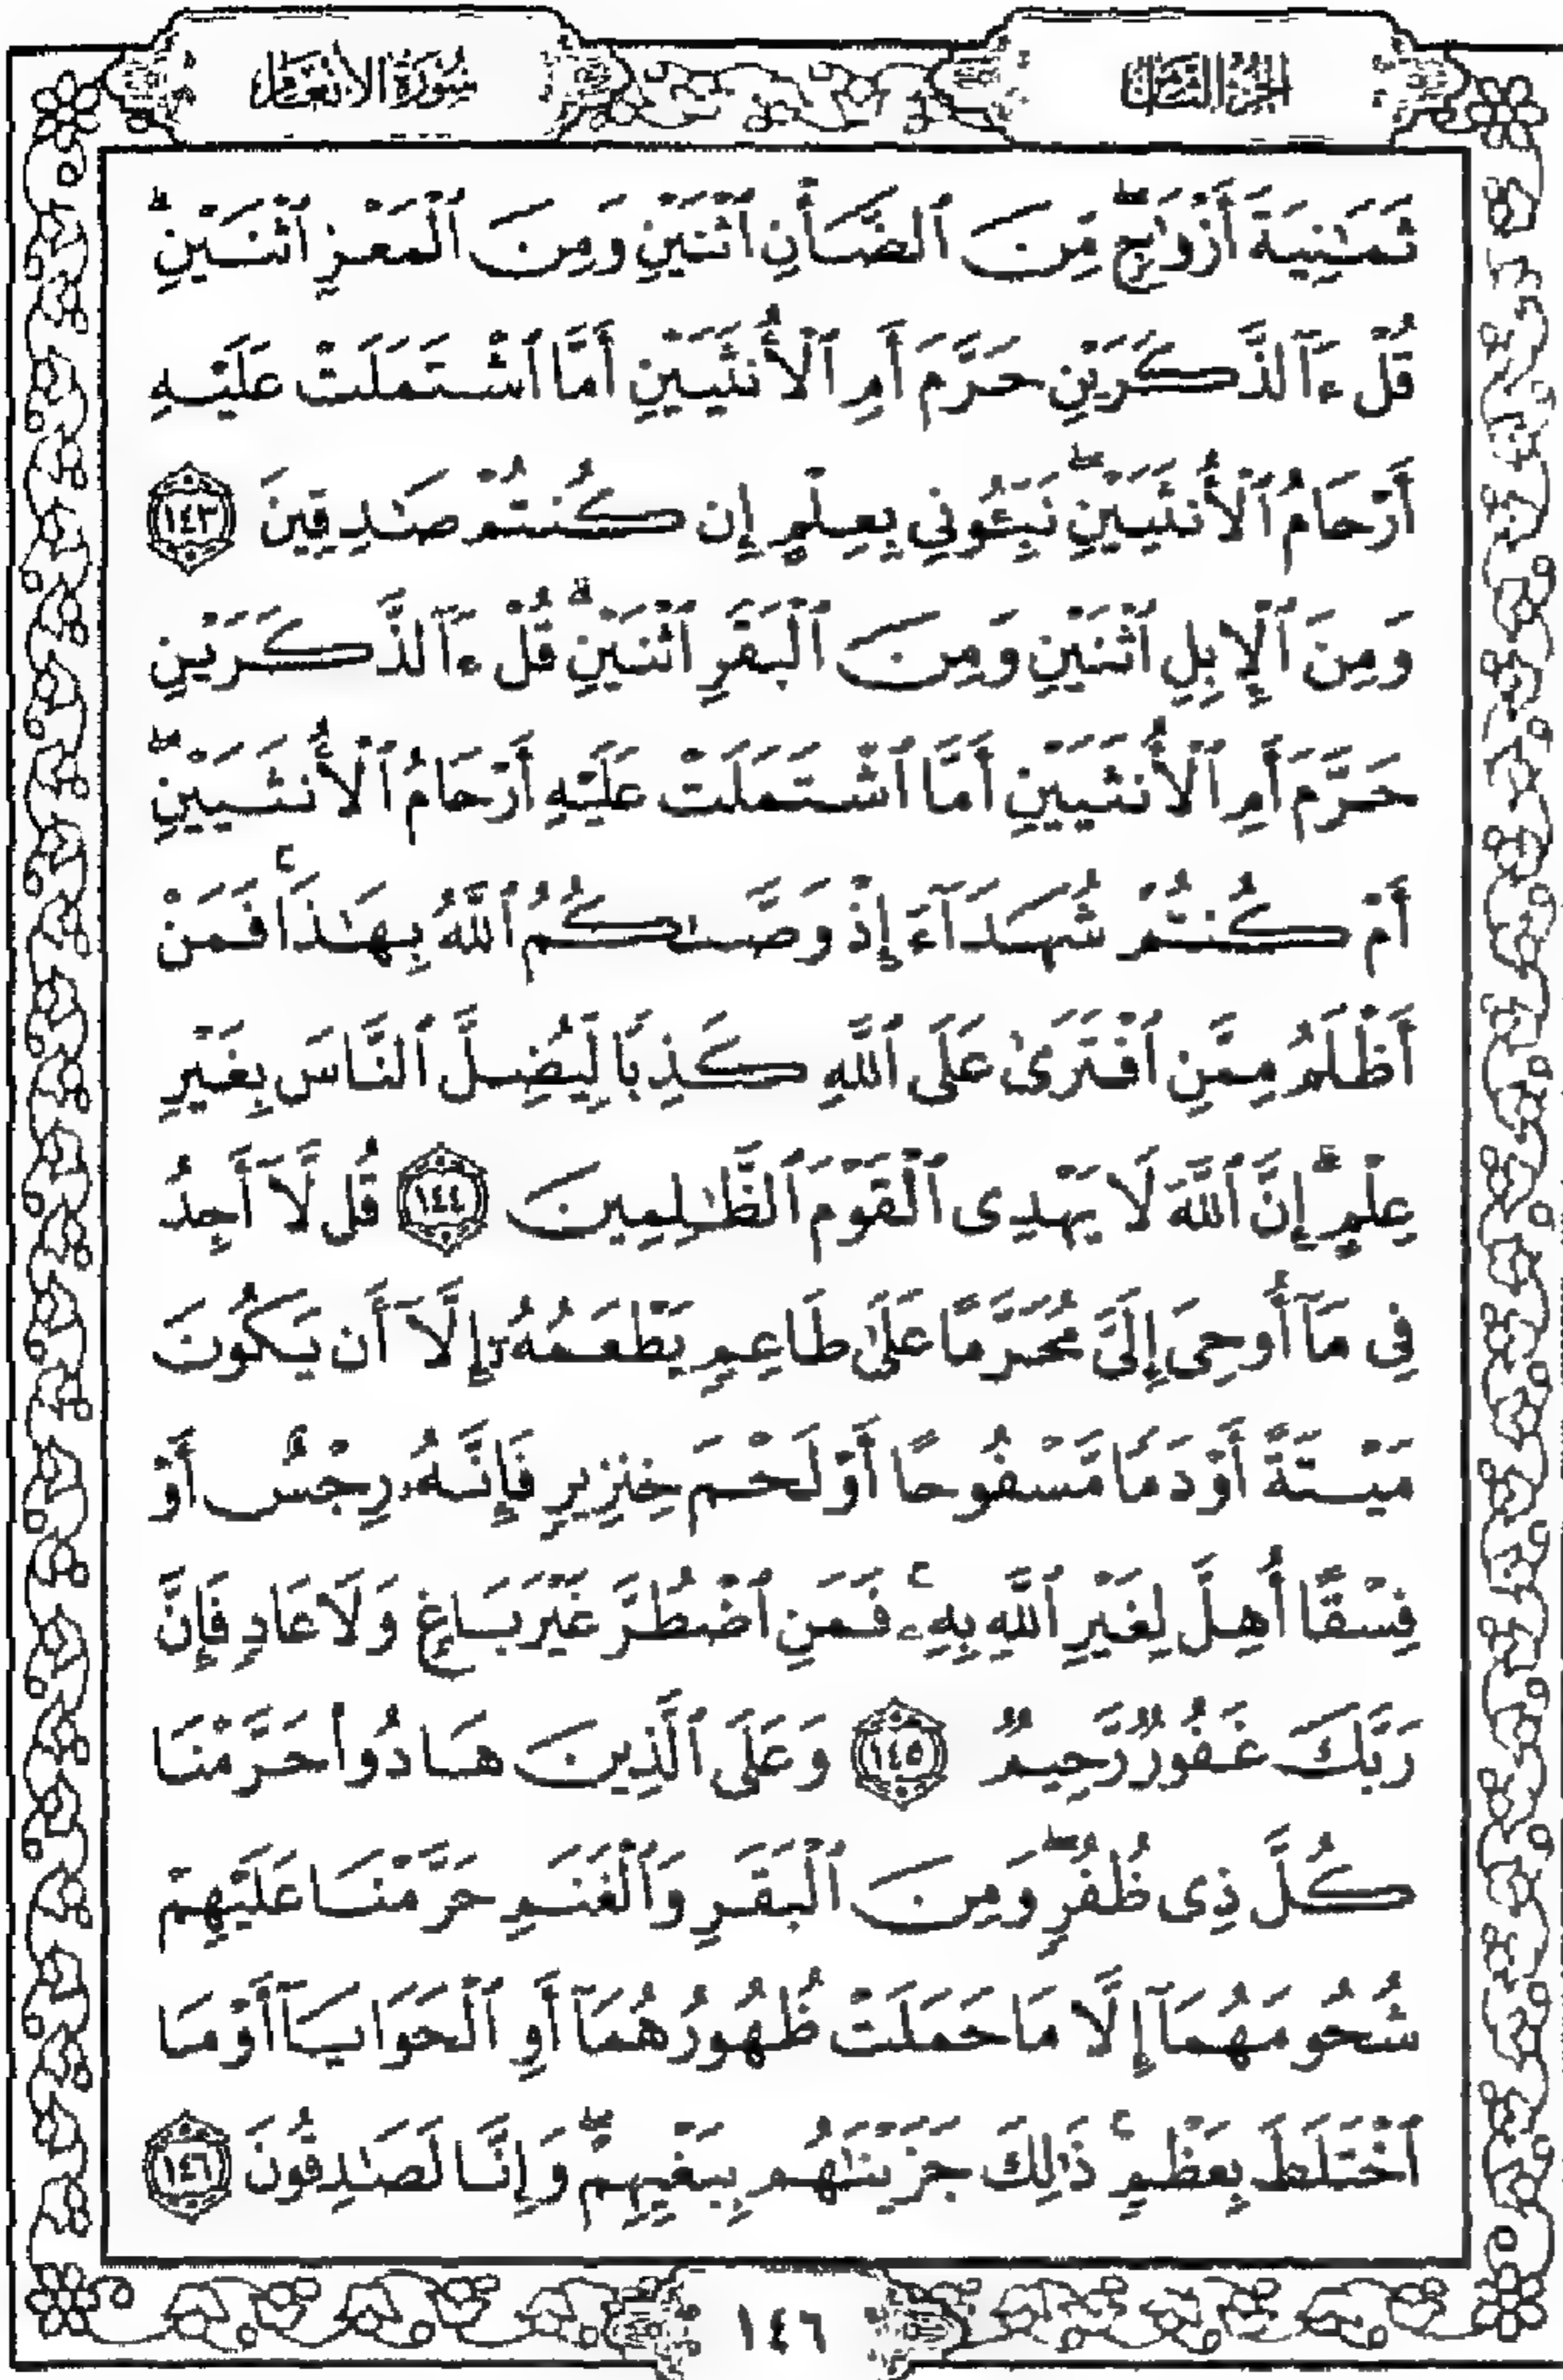 الجزء الثامن
سورة الأنعام
ثَمَٰنِيَةَ أَزْوَٰجٍ ۖ مِّنَ ٱلضَّأْنِ ٱثْنَيْنِ وَمِنَ ٱلْمَعْزِ ٱثْنَيْنِ ۗ
قُلْ ءَآلذَّكَرَيْنِ حَرَّمَ أَمِ ٱلْأُنثَيَيْنِ أَمَّا ٱشْتَمَلَتْ عَلَيْهِ
أَرْحَامُ ٱلْأُنثَيَيْنِ ۖ نَبِّـُٔونِي بِعِلْمٍ إِن كُنتُمْ صَٰدِقِينَ ١٤٣
وَمِنَ ٱلْإِبِلِ ٱثْنَيْنِ وَمِنَ ٱلْبَقَرِ ٱثْنَيْنِ ۗ قُلْ ءَآلذَّكَرَيْنِ
حَرَّمَ أَمِ ٱلْأُنثَيَيْنِ أَمَّا ٱشْتَمَلَتْ عَلَيْهِ أَرْحَامُ ٱلْأُنثَيَيْنِ ۖ
أَمْ كُنتُمْ شُهَدَآءَ إِذْ وَصَّىٰكُمُ ٱللَّهُ بِهَٰذَا ۚ فَمَنْ
أَظْلَمُ مِمَّنِ ٱفْتَرَىٰ عَلَى ٱللَّهِ كَذِبًا لِّيُضِلَّ ٱلنَّاسَ بِغَيْرِ
عِلْمٍ ۗ إِنَّ ٱللَّهَ لَا يَهْدِى ٱلْقَوْمَ ٱلظَّٰلِمِينَ ١٤٤ قُل لَّآ أَجِدُ
فِى مَآ أُوحِىَ إِلَىَّ مُحَرَّمًا عَلَىٰ طَاعِمٍ يَطْعَمُهُۥٓ إِلَّآ أَن يَكُونَ
مَيْتَةً أَوْ دَمًا مَّسْفُوحًا أَوْ لَحْمَ خِنزِيرٍ فَإِنَّهُۥ رِجْسٌ أَوْ
فِسْقًا أُهِلَّ لِغَيْرِ ٱللَّهِ بِهِۦ ۚ فَمَنِ ٱضْطُرَّ غَيْرَ بَاغٍ وَلَا عَادٍ فَإِنَّ
رَبَّكَ غَفُورٌ رَّحِيمٌ ١٤٥ وَعَلَى ٱلَّذِينَ هَادُوا۟ حَرَّمْنَا
كُلَّ ذِى ظُفُرٍ ۖ وَمِنَ ٱلْبَقَرِ وَٱلْغَنَمِ حَرَّمْنَا عَلَيْهِمْ
شُحُومَهُمَآ إِلَّا مَا حَمَلَتْ ظُهُورُهُمَآ أَوِ ٱلْحَوَايَآ أَوْ مَا
ٱخْتَلَطَ بِعَظْمٍ ۚ ذَٰلِكَ جَزَيْنَٰهُم بِبَغْيِهِمْ ۖ وَإِنَّا لَصَٰدِقُونَ ١٤٦
١٤٦